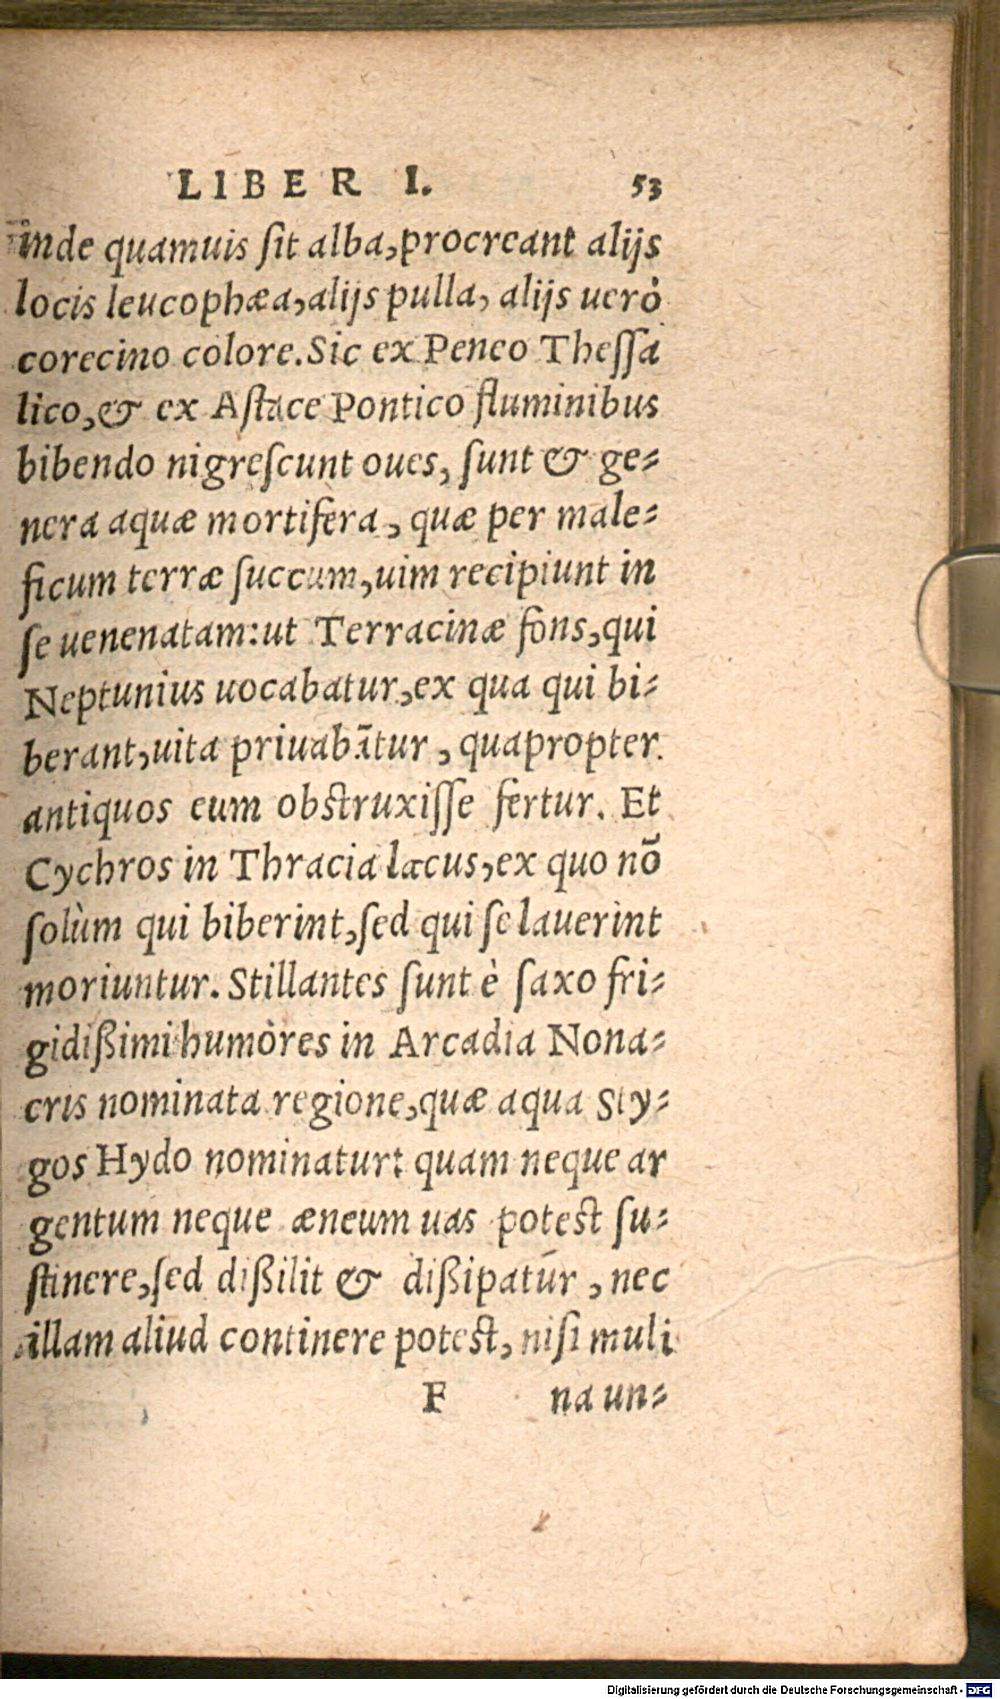 LIBER I. 53
inde quamuis ſit alba, procreant alijs
locis leucophæa, alijs pulla, alijs uerò
corecino colore. Sic ex Peneo Theſſa
lico, & ex Aſtace Pontico fluminibus
bibendo nigreſcunt oues, ſunt & ge-
nera aquæ mortifera, quæ per male-
ficum terræ ſuccum, uim recipiunt in
ſe uenenatam: ut Terracinæ fons, qui
Neptunius uocabatur, ex qua qui bi-
berant, uita priuabãtur, quapropter
antiquos eum obſtruxiſſe fertur. Et
Cychros in Thracia lacus, ex quo nõ
ſolùm qui biberint, ſed qui ſe lauerint
moriuntur. Stillantes ſunt è ſaxo fri-
gidißimi humòres in Arcadia Nona-
cris nominata regione, quæ aqua Sty-
gos Hydo nominatur: quam neque ar
gentum neque æneum uas poteſt ſu-
ſtinere, ſed dißilit & dißipatur, nec
illam aliud continere poteſt, niſi muli
F na un-
Digitalisierung gefördert durch die Deutsche Forschungsgemeinschaft - DFG